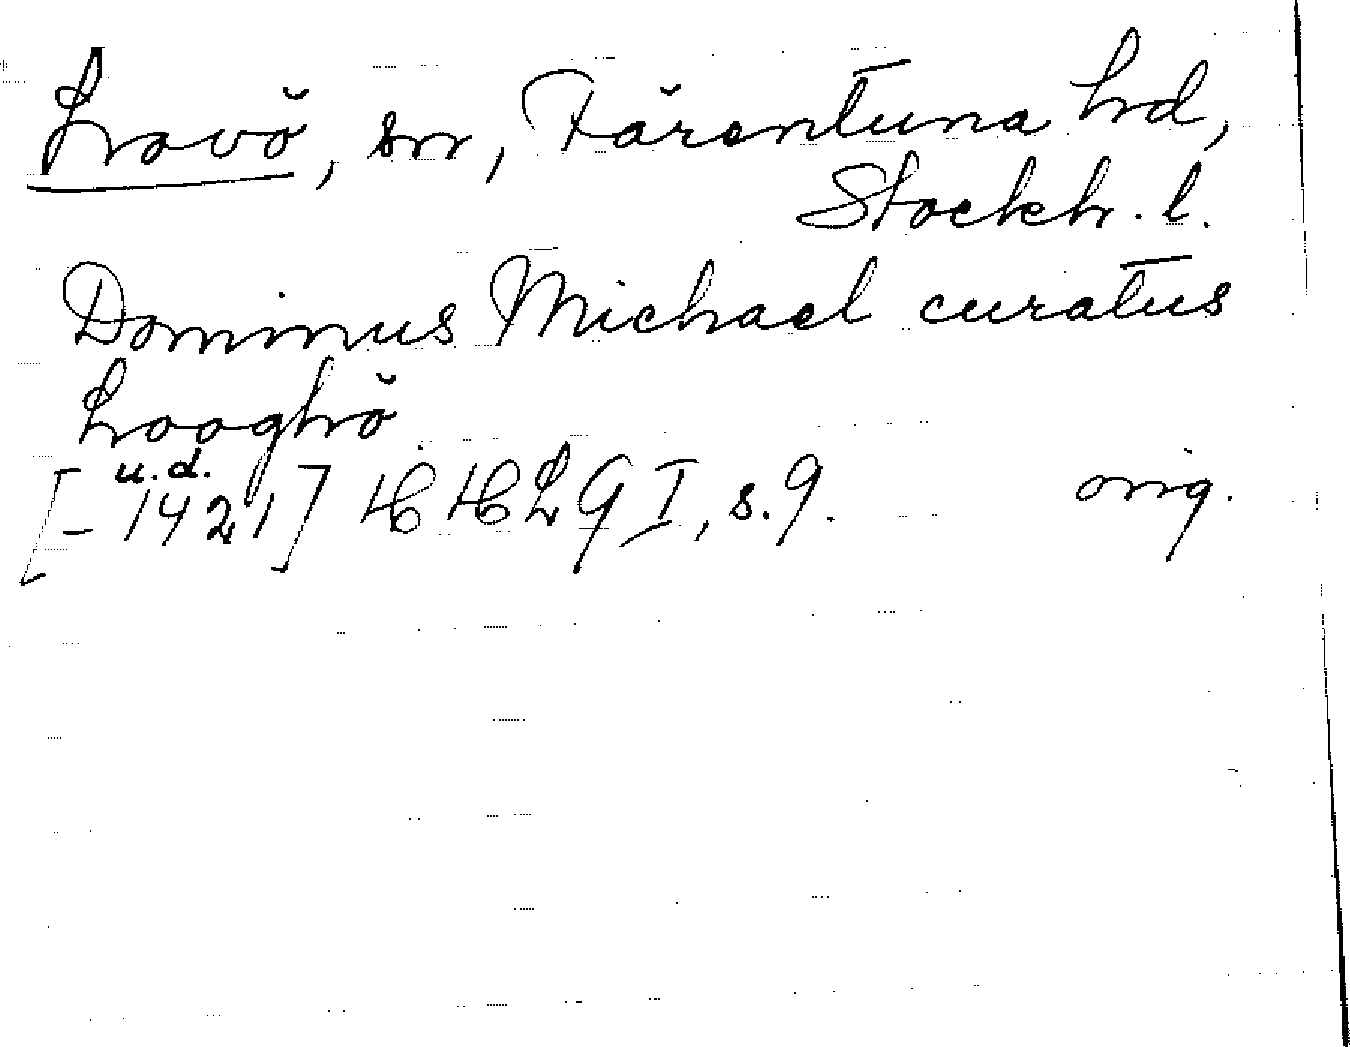 Lovö, sn, Färentuna hd,
Stockh. l.
Dominus Michael curatus
Looghö
u.d.
[- 1421] HHLG I, s. 9. orig.